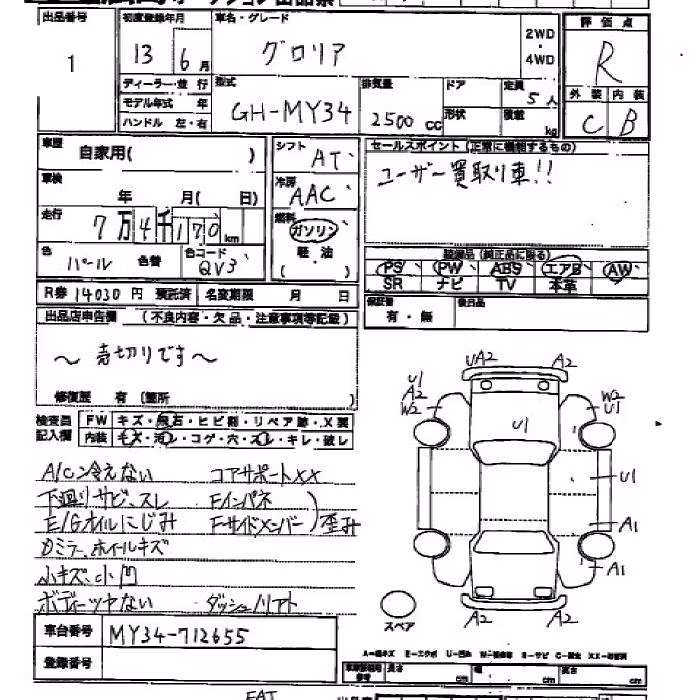 出品番号 初度登録年月 車名・グレード 評価点
1 13 6月 グロリア 2WD・4WD R
ディーラー・並行 型式 排気量 ドア 定員 外装 内装
モデル年式 年 GH-MY34 2500cc 形状 5人 C B
ハンドル 左・右 積載 kg
車歴 自家用( ) シフト AT セールスポイント(正常に機能するもの)
車検 年 月( 日) 冷房 AAC ユーザー買取り車!!
走行 7万4千170km 燃料 ガソリン
色 パール 色替 色コード QV3 軽・油 ( ) 装備品(純正品に限る)
PS PW ABS エアB AW
SR ナビ TV 本革
R券 14030円 預託済 名変期限 月 日 保証書 有・無 後日品
出品店申告欄 (不良内容・欠品・注意事項等記載)
～売切りです～
修復歴 有(箇所 )
検査員記入欄 FW キズ・飛石・ヒビ割・リペア跡・X要
内装 モス・汚レ・コゲ・穴・スレ・キレ・破レ
A/C冷えない コアサポートXX
下廻りサビ、スレ Fインパネ
E/Gオイルにじみ Fサイドメンバー)歪み
Dミラー、ホイールキズ
小キズ、小凹
ボディーツヤない ダッシュノリアト
UA2 A2
U1 A2 W2 W2 U1
U1
U1
A1
A1
A2 A2
スペア
車台番号 MY34-712655
登録番号
長さ cm 幅 cm 高さ cm